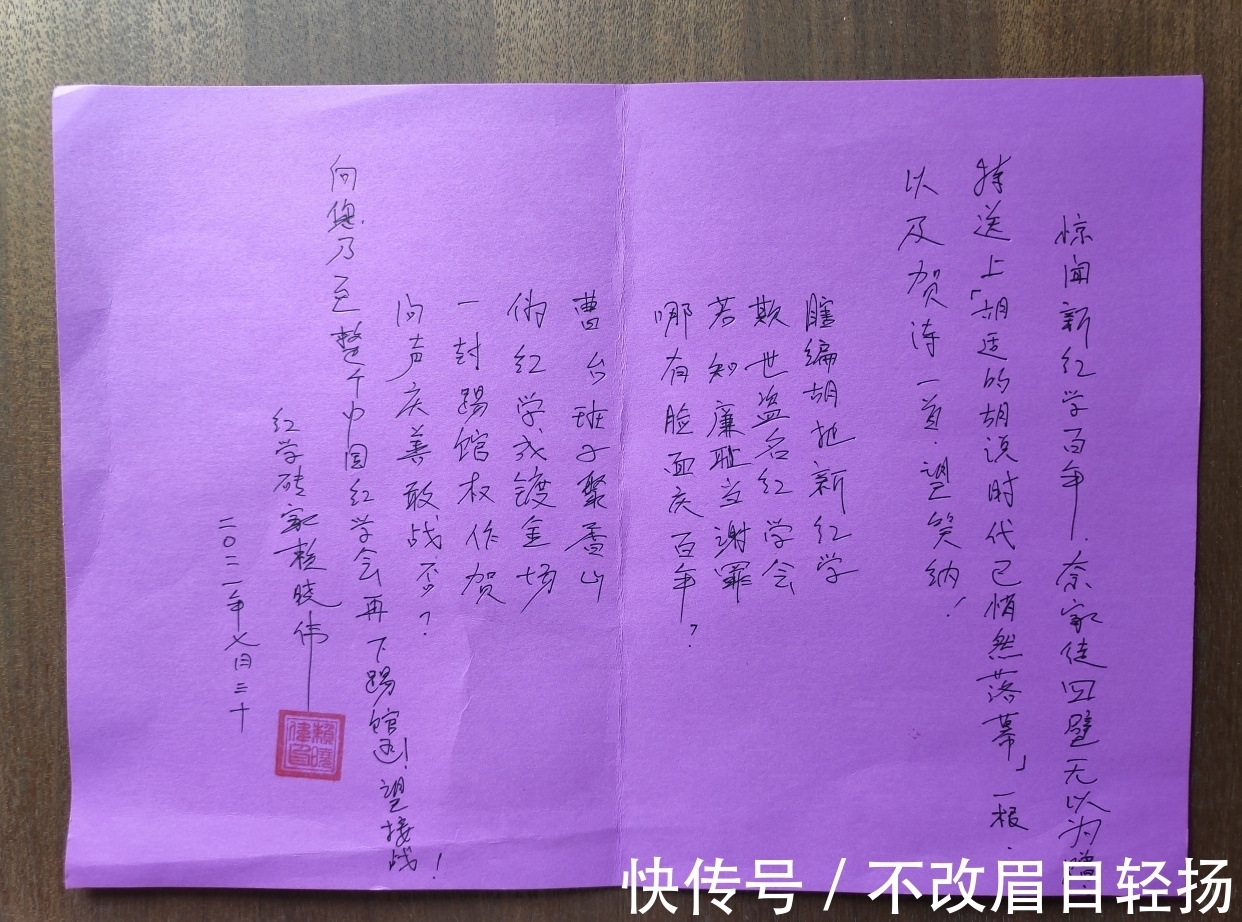 惊闻新红学百年,奈家徒四壁无以为赠,
特送上「胡适的胡说时代已悄然落幕」一报,
以及贺诗一首,望笑纳!
瞎编胡扯新红学
欺世盗名红学会
若知廉耻立谢罪
哪有脸面庆百年?
曹台班子聚香山
伪红学成镀金场
一封踢馆权作贺
问声庆善敢战否?
向您乃至整个中国红学会再下踢馆函!望接战!
红学砖家赖晓伟
二〇二一年七月三十
快传号 / 不改眉目轻扬